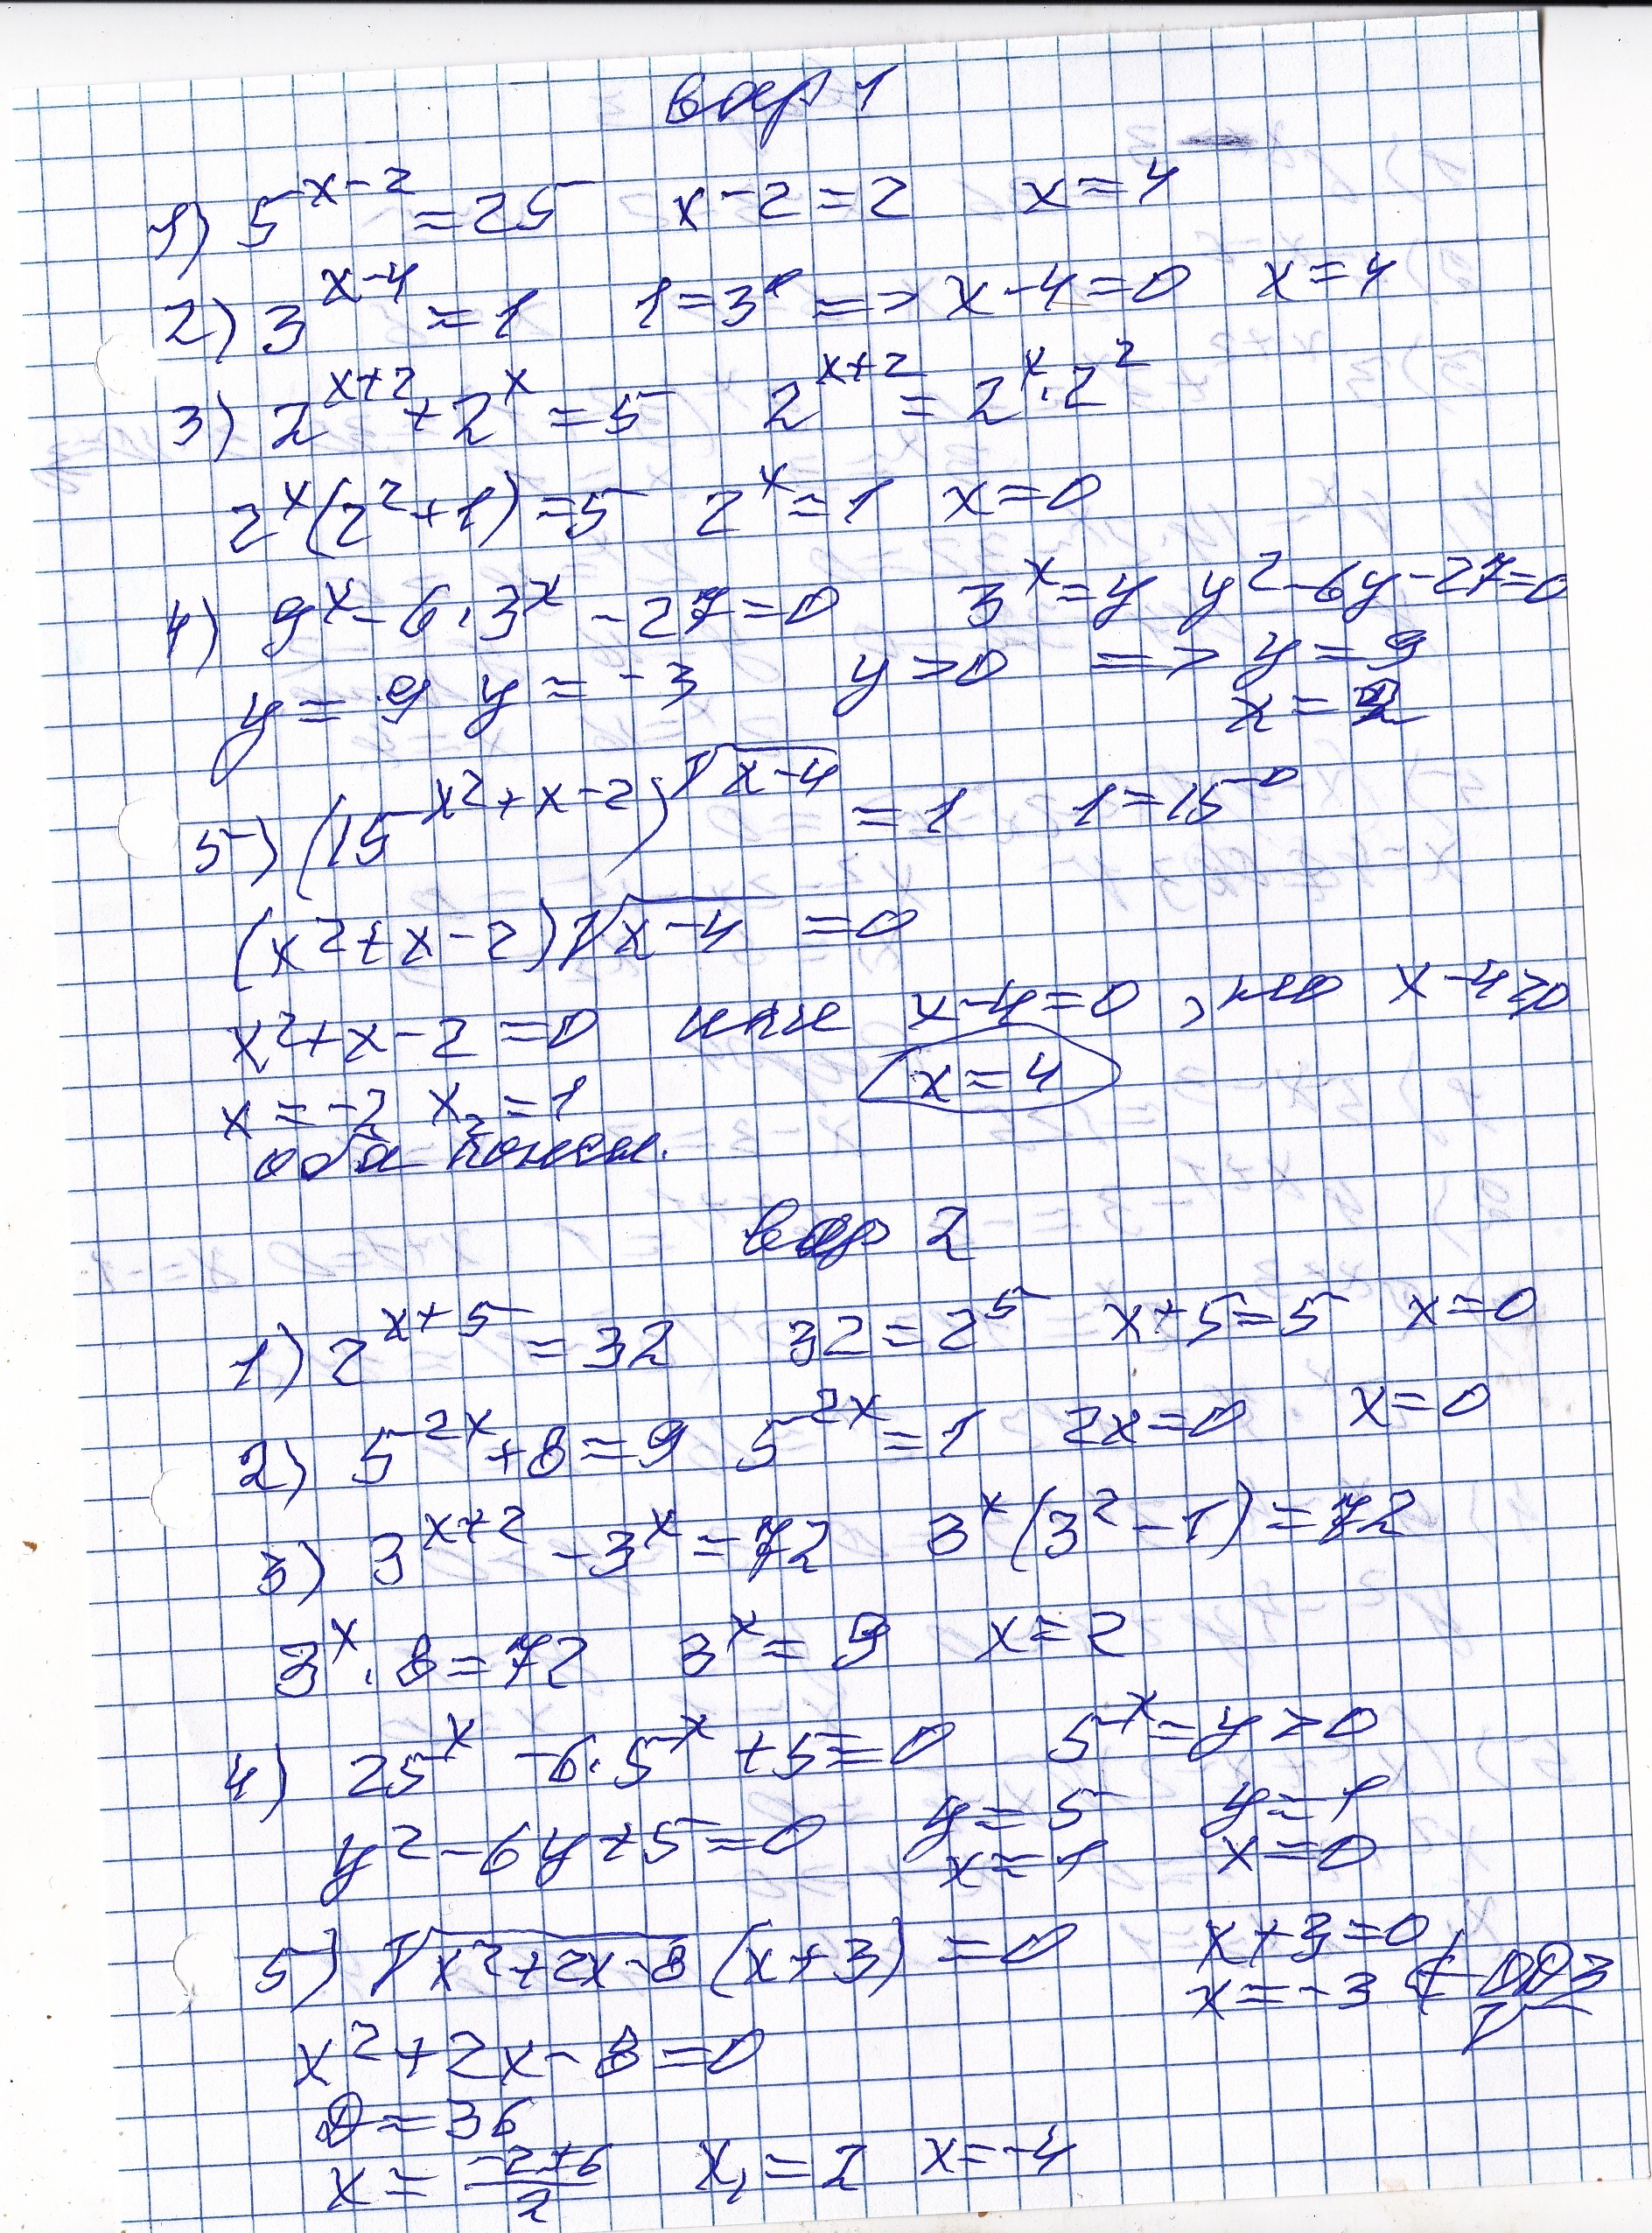 вар 1
1) 5^(x-2) = 25 x-2=2 x=4
2) 3^(x-4) = 1 1=3^0 => x-4=0 x=4
3) 2^(x+2) + 2^x = 5 2^(x+2) = 2^x · 2^2
2^x(2^2+1)=5 2^x=1 x=0
4) 9^x - 6·3^x - 27=0 3^x=y y^2-6y-27=0
y=9 y=-3 y>0 => y=9
x=2
5) (15^(x^2+x-2))^√(x-4) = 1 1=15^0
(x^2+x-2)√(x-4) =0
x^2+x-2=0 или x-4=0, но x-4≥0
x=-2 x₂=1 x=4
оба
вар 2
1) 2^(x+5) = 32 32=2^5 x+5=5 x=0
2) 5^(2x)+8=9 5^(2x)=1 2x=0 x=0
3) 3^(x+2) - 3^x = 72 3^x(3^2-1)=72
3^x · 8=72 3^x=9 x=2
4) 25^x -6·5^x +5=0 5^x=y>0
y^2-6y+5=0 y=5 y=1
x=1 x=0
5) √(x^2+2x-8) (x+3) =0 x+3=0
x=-3 ∉ ОДЗ √
x^2+2x-8=0
D=36
x = (-2±6)/2 x₁=2 x=-4